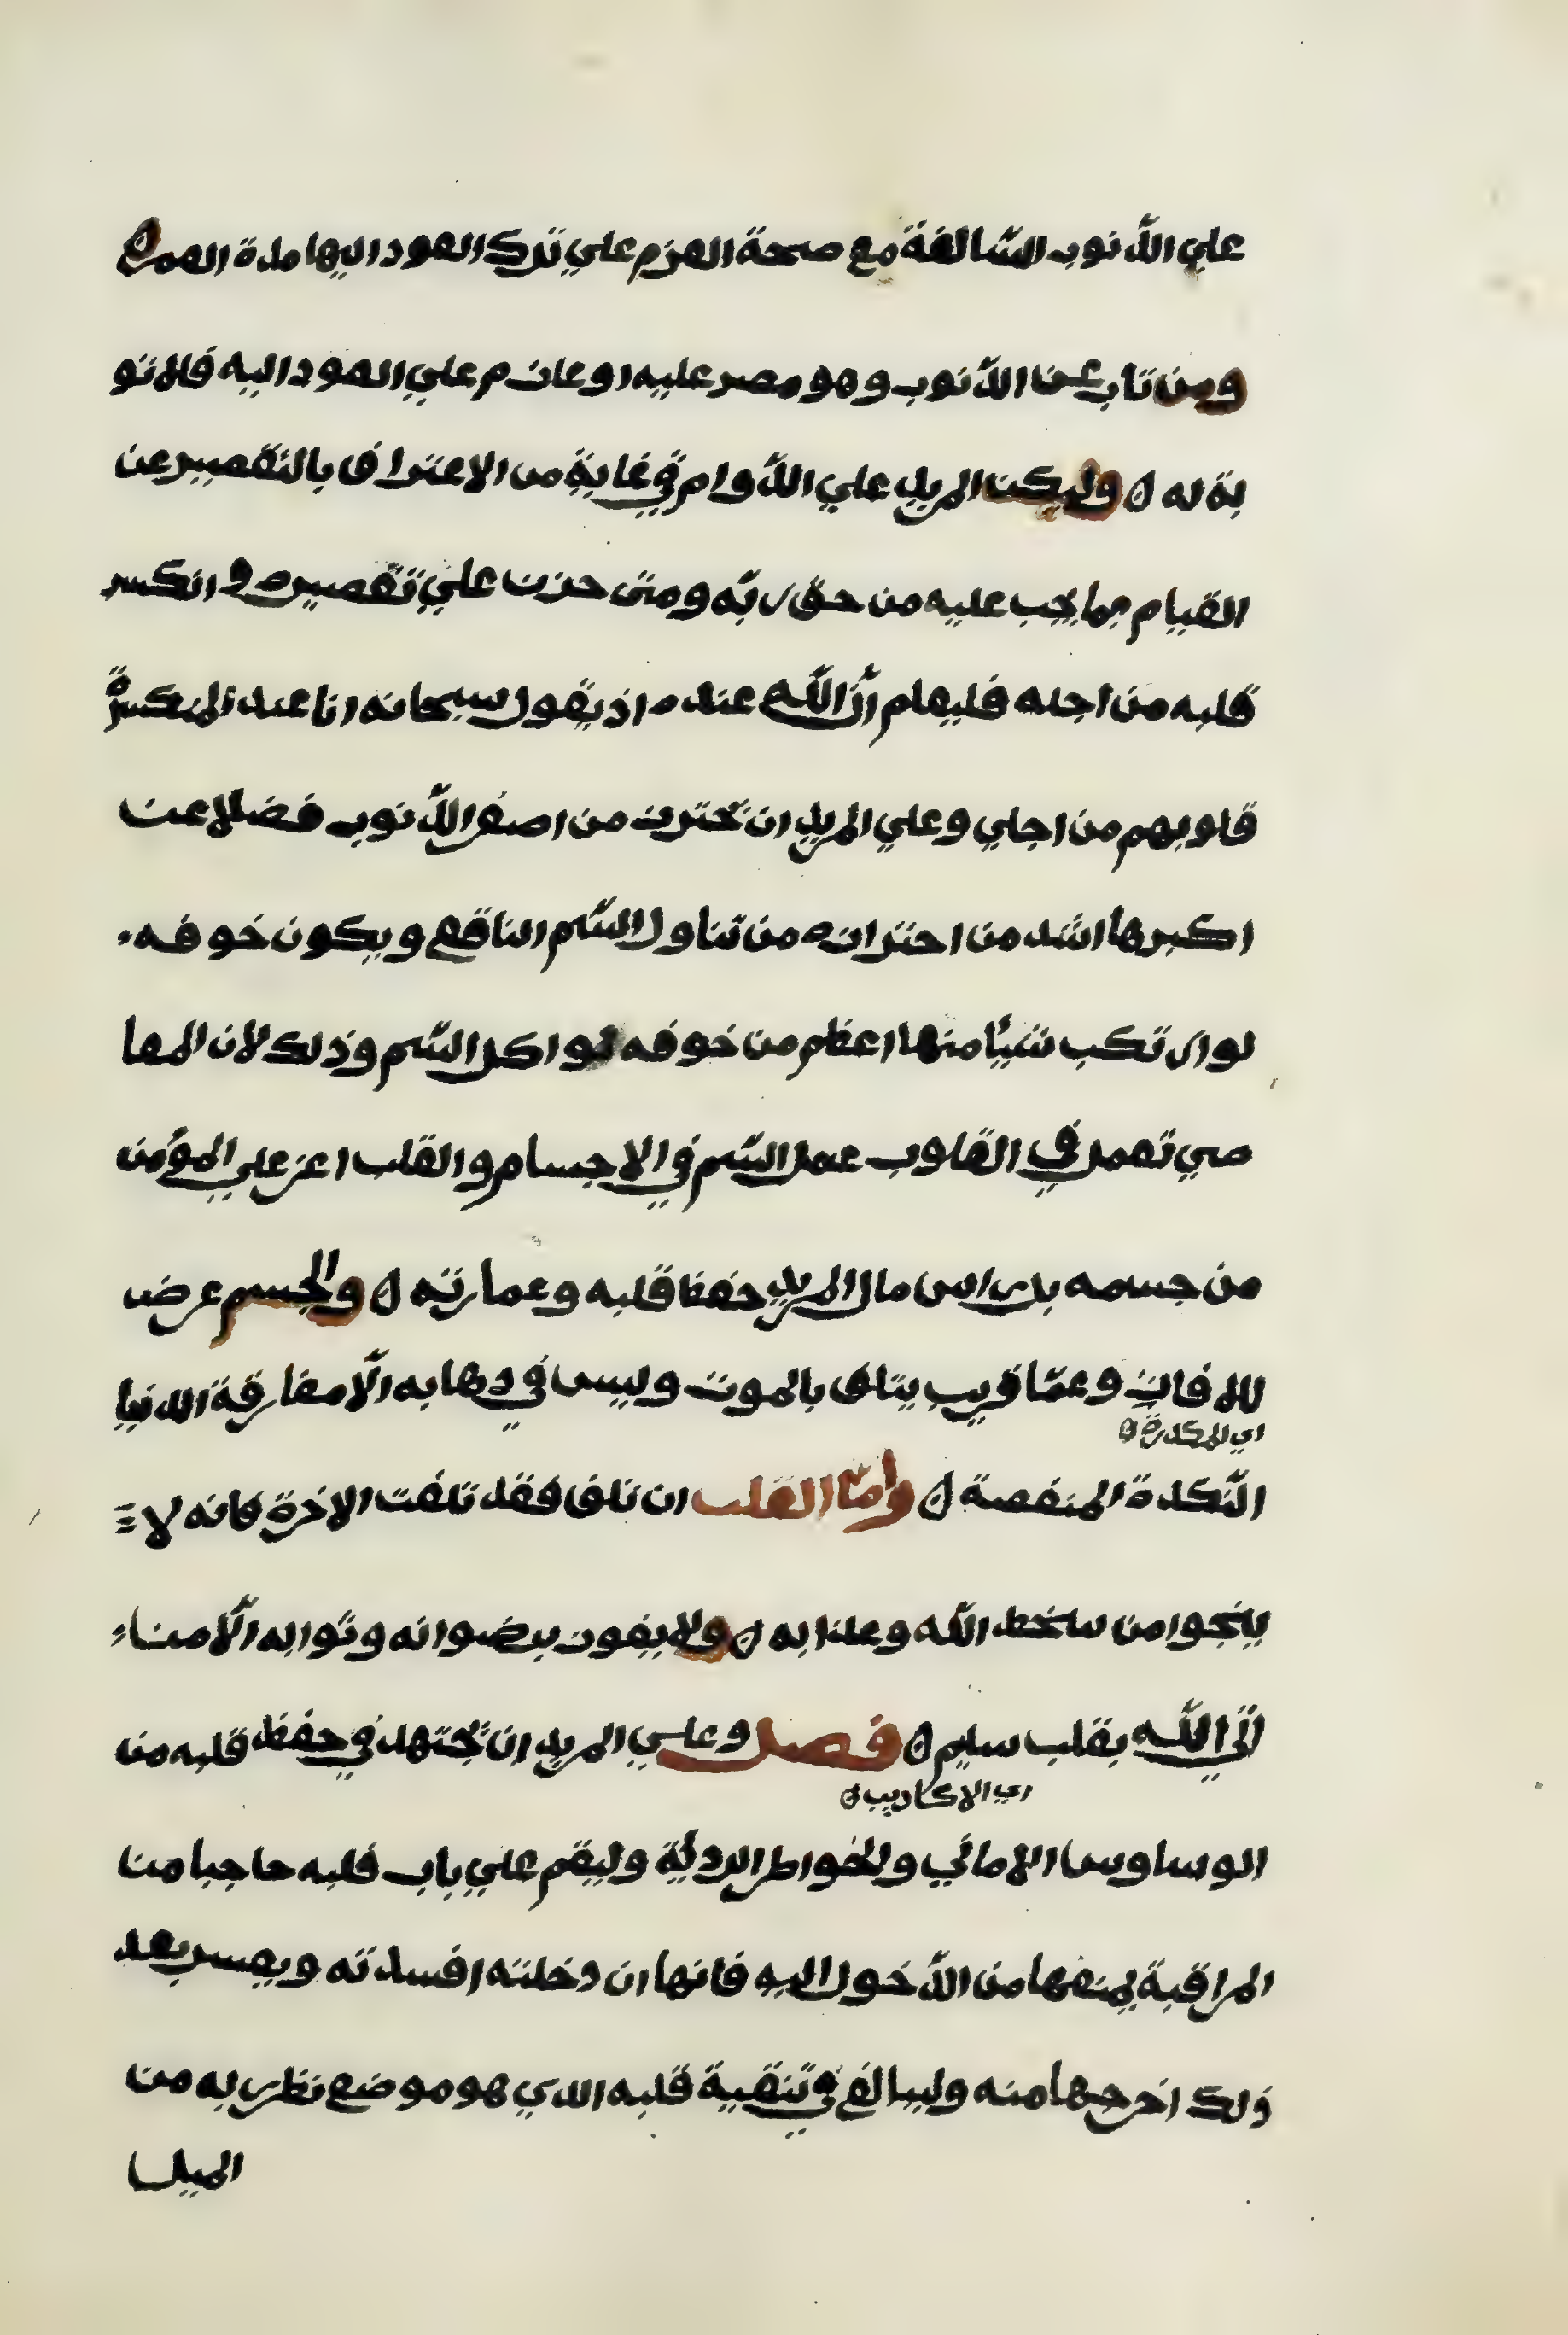 علي الذّنوب السّالفة مع صحة العزم علي ترك العود اليها مدة العمره
ومن تاب عن الذّنوب وهو مصر عليه اوعازم علي العود اليه فلا تو
بة له ه وليكن المريد علي الدّوام في غاية من الاعتراف بالتقصير عن
القيام بما يجب عليه من حق ربّه ومتى حزن علي تقصيره وانكسر
قلبه من اجله فليعلم أنّ اللّه عنده اذ يقول سبحانه انا عند المنكسرةِ
قلوبهم من اجلي وعلي المريد ان يحترز من اصغر الذّنوب فضلا عن
اكبرها اشد من احترازه من تناول السّم الناقع ويكون خوفه
لو ارتكب شيأ منها اعظم من خوفه لو اكل السّم وذلك لان المعا
صي تعمل في القلوب عمل السّم في الاجسام والقلب اعز علي المؤمن
من جسمه بل راس مال المريد حفظ قلبه وعمارته ه والجسم عرض
للافات وعمّا قريب يتلف بالموت وليس في ذهابه الّا مفارقة الدنيا
اي المكدرة ه
النّكدة المنغصة ه وامّا القلب ان تلف فقد تلفت الاخرة فانه لا
ينجوا من سخط اللّه وعذابه ه ولا يفوز برضوانه وثوابه الّا من اء
اتي اللّه بقلب سليم ه فصل وعلي المريد ان يجتهد في حفظ قلبه من
اي الاكاذيب ه
الوساوس الاماني والخواطر الردئة وليقم علي باب قلبه حاجبا من
المراقبة يمنعها من الدّخول اليه فانها ان دخلته افسدته ويعسر بعد
ذلك اخرجها منه وليبالغ في تنقية قلبه الذي هو موضع نظر ربه من
الميل